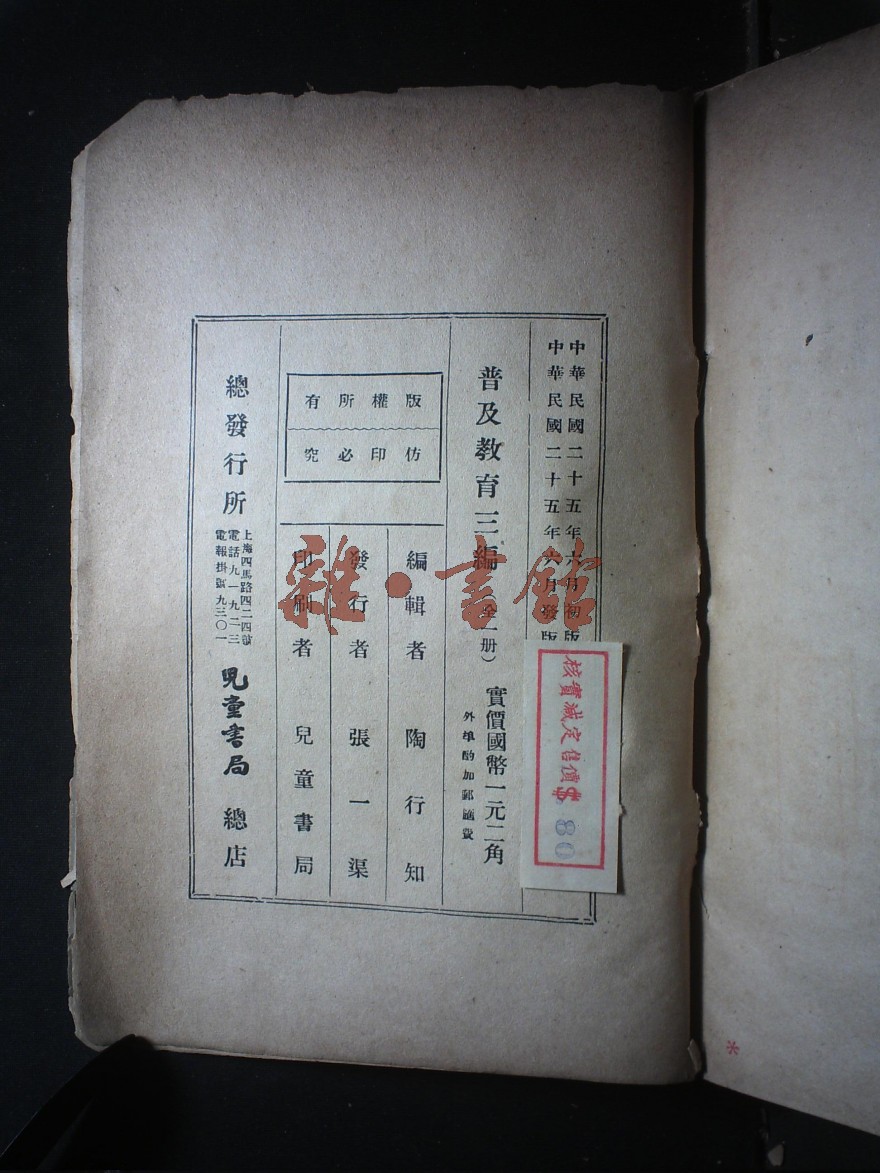 中華民國二十五年六月初版
中華民國二十五年六月發版
普及教育三編（全一册）實價國幣一元二角
外埠酌加郵匯費
版權所有
仿印必究
編輯者 陶行知
發行者 張一渠
印刷者 兒童書局
總發行所
上海四馬路四二四號
電話九一九二三
電報掛號九三〇一
兒童書局 總店
核實減定售價$ .80
雜·書館
*